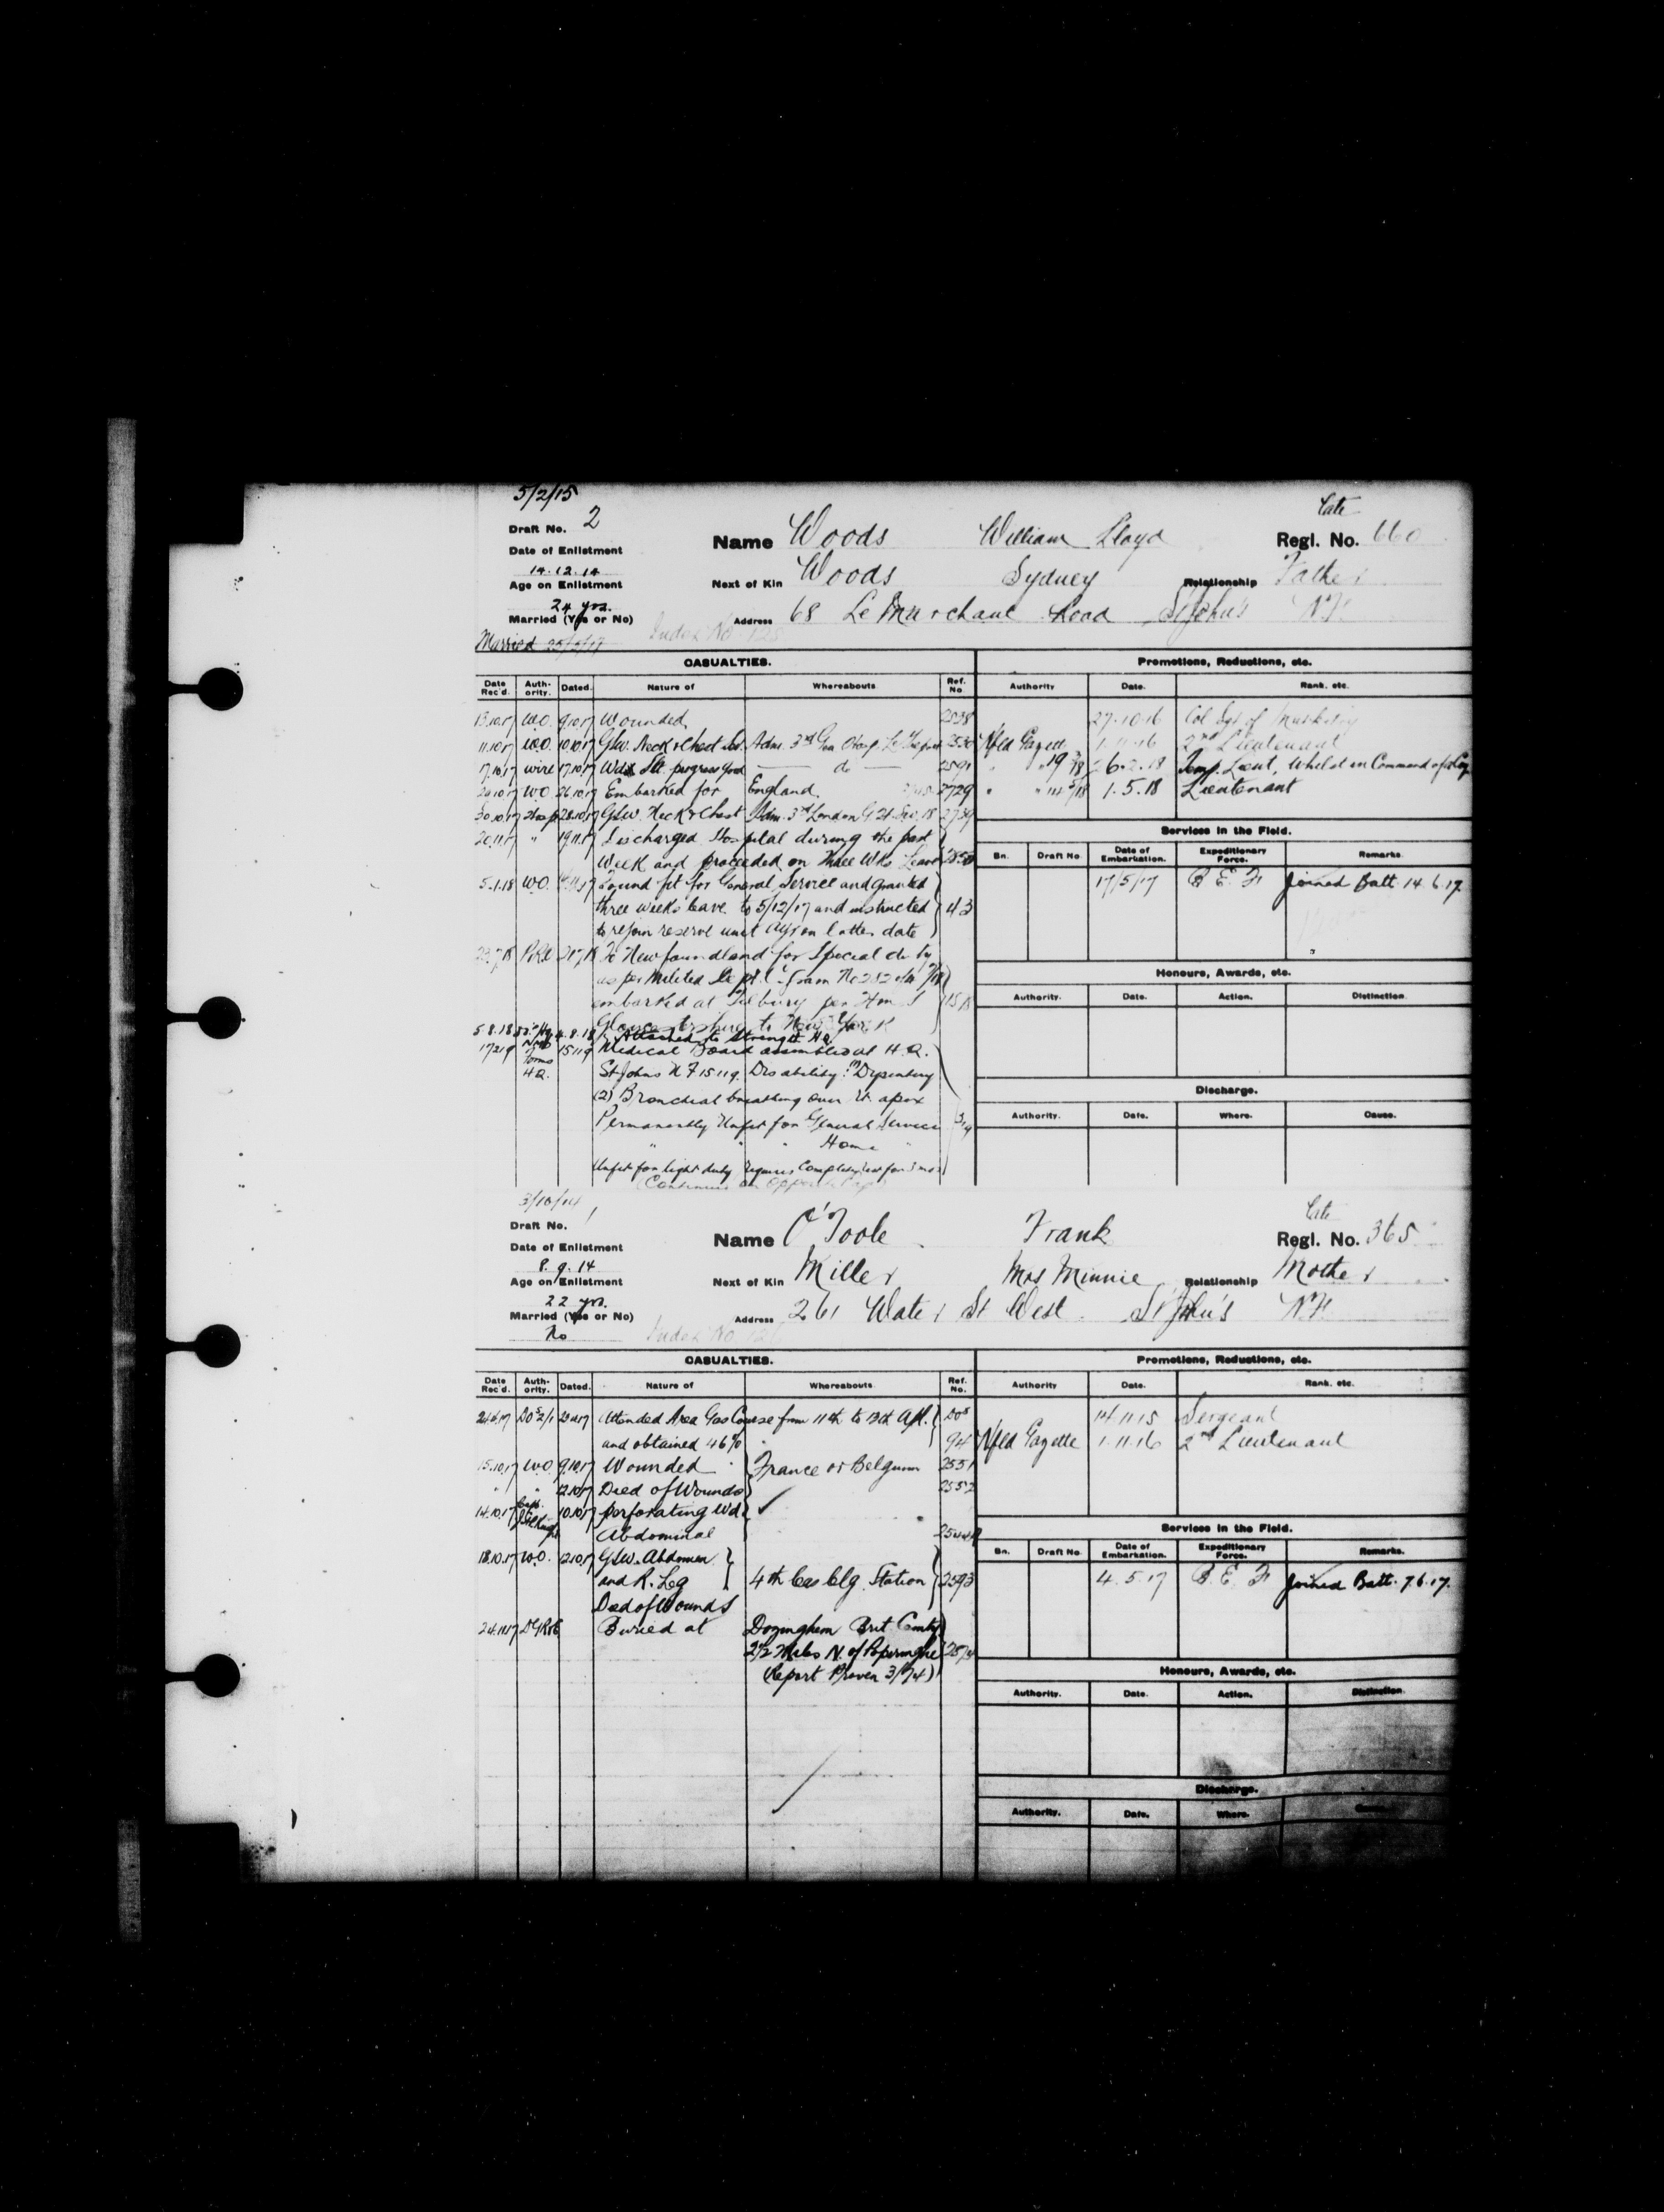 5/2/15
Draft No. 2
Late
Name Woods William Lloyd Regl. No. 660
Date of Enlistment
14.12.14
Next of Kin Woods Sydney Relationship Father
Age on Enlistment
24 yrs.
Address 68 LeMarchant Road St John's N.F.
Married (Yes or No)
Index No 125
Married
CASUALTIES. Promotions, Reductions, etc.
Date Rec'd. Authority. Dated. Nature of Whereabouts Ref. No. Authority Date. Rank. etc.
13.10.17 W.O. 9.10.17 Wounded 2538 27.10.16 Col Sgt of Musketry
11.10.17 W.O. 10.10.17 GSW. Neck & Chest Adm. 3rd Gen Hosp. Le Treport 2530 Nfld Gazette 1.11.16 2nd Lieutenant
17.10.17 wire 17.10.17 progress good do 2591 " 6.2.18 Temp. Lieut, whilst in Command of a Coy
W.O. 26.10.17 Embarked for England. 2729 " 1.5.18 Lieutenant
30.10.17 28.10.17 GSW. Neck & Chest Adm. 3rd London G 2739
20.11.17 " 19.11.17 Discharged Hospital during the past
Week and proceeded on three Wks Leave
Services in the Field.
Bn. Draft No Date of Embarkation. Expeditionary Force. Remarks
5.1.18 W.O. Found fit for General Service and granted 17/5/17 B.E.F. Joined Batt. 14.6.17.
three weeks leave to 5/12/17 and instructed 43
to rejoin reserve unit Ayr on latter date
To Newfoundland for Special duty
as per Militia
embarked at Tilbury per
Gloucestershire to New York
Honours, Awards, etc.
Authority. Date. Action. Distinction
5.8.18 Attached to Strength HQ
17219 15119 Medical Board assembled at H.Q.
St Johns N.F 15119. Disability: Dysentery
(2) Bronchial breathing over Rt apex
Permanently Unfit for General Service
" " " Home "
Unfit for light duty requires Complete rest for 3 mos
(Continued on Opposite Page)
Discharge.
Authority. Date. Where. Cause.
3/10/14
Draft No. 1
Late
Name O'Toole Frank Regl. No. 365
Date of Enlistment
8.9.14
Next of Kin Miller Mrs Minnie Relationship Mother
Age on Enlistment
22 yrs.
Address 261 Water St West St John's N.F.
Married (Yes or No)
No
Index No 126
CASUALTIES. Promotions, Reductions, etc.
Date Rec'd. Authority. Dated. Nature of Whereabouts Ref. No. Authority Date. Rank. etc.
Attended Area Gas Course from 11th to 13th Apl. 14.11.15 Sergeant
and obtained 46% 94 Nfld Gazette 1.11.16 2nd Lieutenant
15.10.17 W.O. 9.10.17 Wounded France or Belgium 2551
" " 12.10.17 Died of Wounds 2552
14.10.17 10.10.17 perforating Wd.
Abdominal
18.10.17 W.O. 12.10.17 GSW. Abdomen
and R. Leg 4th Cas Clg. Station 2593
Died of Wounds
Services in the Field.
Bn. Draft No Date of Embarkation. Expeditionary Force. Remarks.
4.5.17 B.E.F. Joined Batt. 7.6.17.
24.11.17 Buried at Dozinghem Brit. Cemty
2½ Miles N. of Poperinghe
(Report Proven
Honours, Awards, etc.
Authority. Date. Action. Distinction.
Discharge.
Authority. Date. Where.